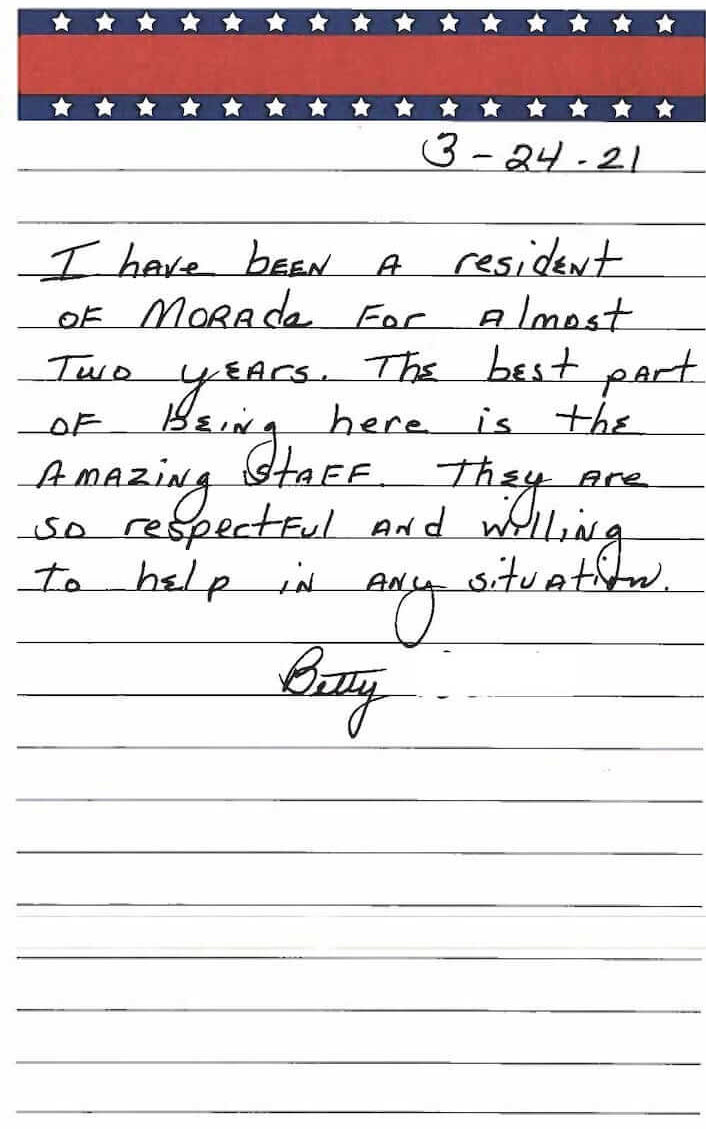 3-24-21
I have been a resident
of Morada for almost
Two years. The best part
of being here is the
Amazing Staff. They are
so respectful and willing
to help in any situation.
Betty